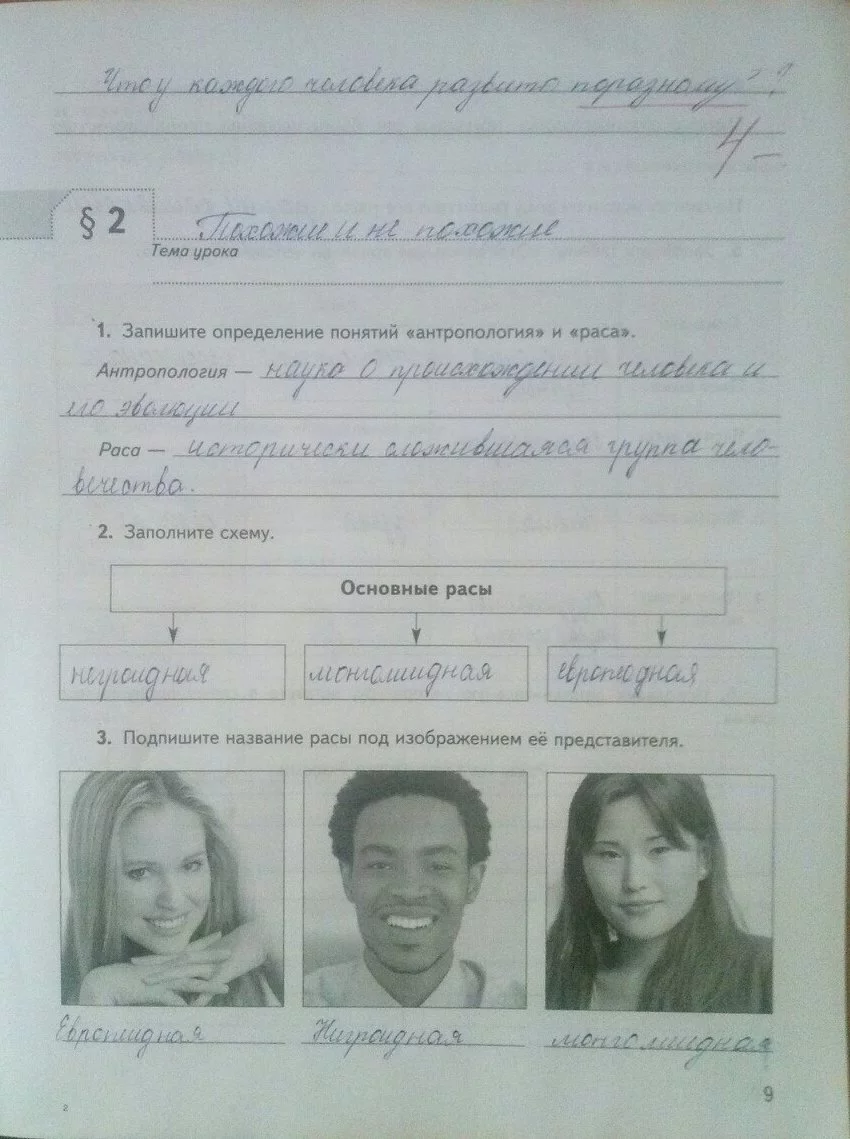 Что у каждого человека развито поразному?
4-
§ 2
Похожие и не похожие
Тема урока
1. Запишите определение понятий «антропология» и «раса».
Антропология — наука о происхождении человека и
его эволюции
Раса — исторически сложившаяся группа чело-
вечества.
2. Заполните схему.
Основные расы
негроидная монголиидная европеодная
3. Подпишите название расы под изображением её представителя.
Европиидная Нигроидная монголиидная
9
2